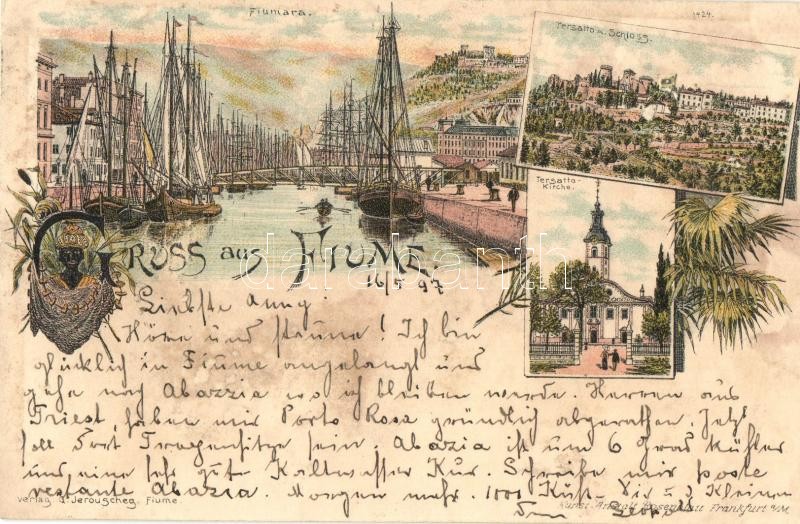 Fiumara.
1424.
Tersatto m. Schloss.
Tersatto-
Kirche.
GRUSS aus FIUME.
darabanth
16/5 97
Liebste Anny!
Höre und staune! Ich bin
glücklich in Fiume angelangt und
gehe nach Abazzia wo ich bleiben werde. Herren aus
Triest haben mir Porto Rosa gründlich abgerathen. Jetzt
soll dort Tropenhitze sein. Abazia ist um 6 Grad kühler
und eine sehr gute Kaltwasser Kur. Schreibe mir poste
restante Abazia. Morgen mehr. 1000 Küsse Dir u d Kleinen
Dein Leopold
Verlag d. Jerouscheg, Fiume.
Kunst-Anstalt Rosenblatt Frankfurt a/M.